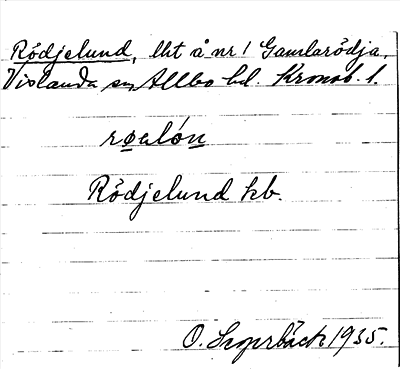 Rödjelund, lht å nr 1 Gamlarödja,
Vislanda sn Allbo hd. Kronob. l.
Rödjelund kb.
O. 1935.